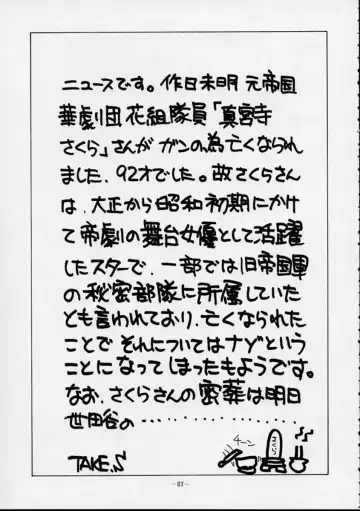 ニュースです。作日未明 元帝国
華劇団 花組隊員「真宮寺
さくら」さんが ガンの為亡くなられ
ました。92才でした。故さくらさん
は、大正から昭和初期にかけ
て帝劇の舞台女優として活躍
したスターで、一部では旧帝国軍
の秘密部隊に所属していた
とも言われており、亡くなられた
ことで それについてはナゾという
ことになってしまったもようです。
なお、さくらさんの密葬は明日
世田谷の・・・・・・・・・・・・・・
チーン
さくら
TAKE.S
-07-